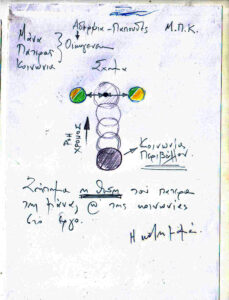 Μάνα
Πατέρας
Κοινωνία
Οικογένεια
Αδέρφια - Παππούδες
Μ.Π.Κ.
Σχήμα
ΡΟΗ
ΧΡΟΝΟΣ
Κοινωνίας
Περιβάλλον.
Ζήτημα η θέση του πατέρα
της μάνας @ της κοινωνίας
στο έργο.